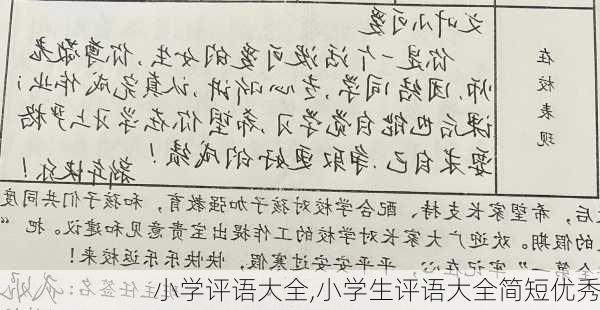 文叶小可爱
你是一个活泼可爱的女生,你尊敬老
师,团结同学,专心听讲,认真完成作业;
课后也能自觉学习,希望你在学习上严格
要求自己.争取更好的成绩!
新年快乐!
在校表现
后,希望家长支持、配合学校对孩子加强教育,和孩子们共同度
的假期。欢迎广大家长对学校的工作提出宝贵意见和建议。把“
全第一”牢记在心,平平安安过寒假,快快乐乐返校来!
班主任签名:
小学评语大全,小学生评语大全简短优秀